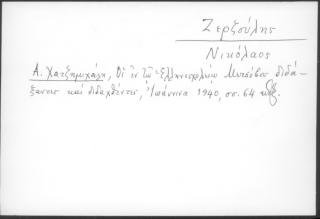 Ζερζούλης
Νικόλαος
Α. Χατζημιχάλη, Οἱ ἐν τῷ Ἑλληνοσχολείῳ Μετσόβου διδά-
ξαντες καὶ διδαχθέντες, Ἰωάννινα 1940, σσ. 64 κἑξ.